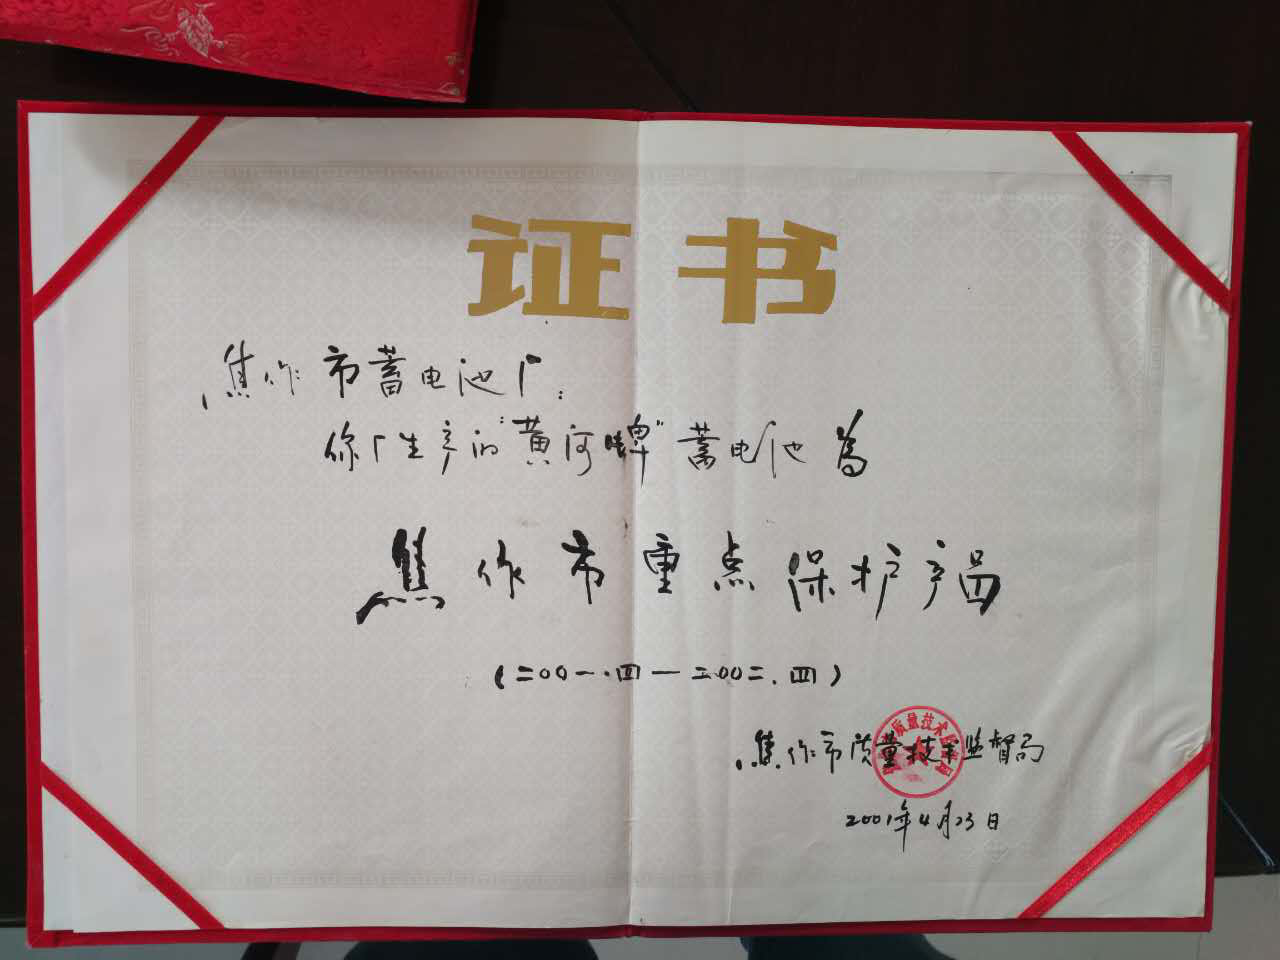 证书
焦作市蓄电池厂：
你厂生产的“黄河牌”蓄电池为
焦作市重点保护产品
（二00一.四—二00二.四）
焦作市质量技术监督局
2001年4月23日